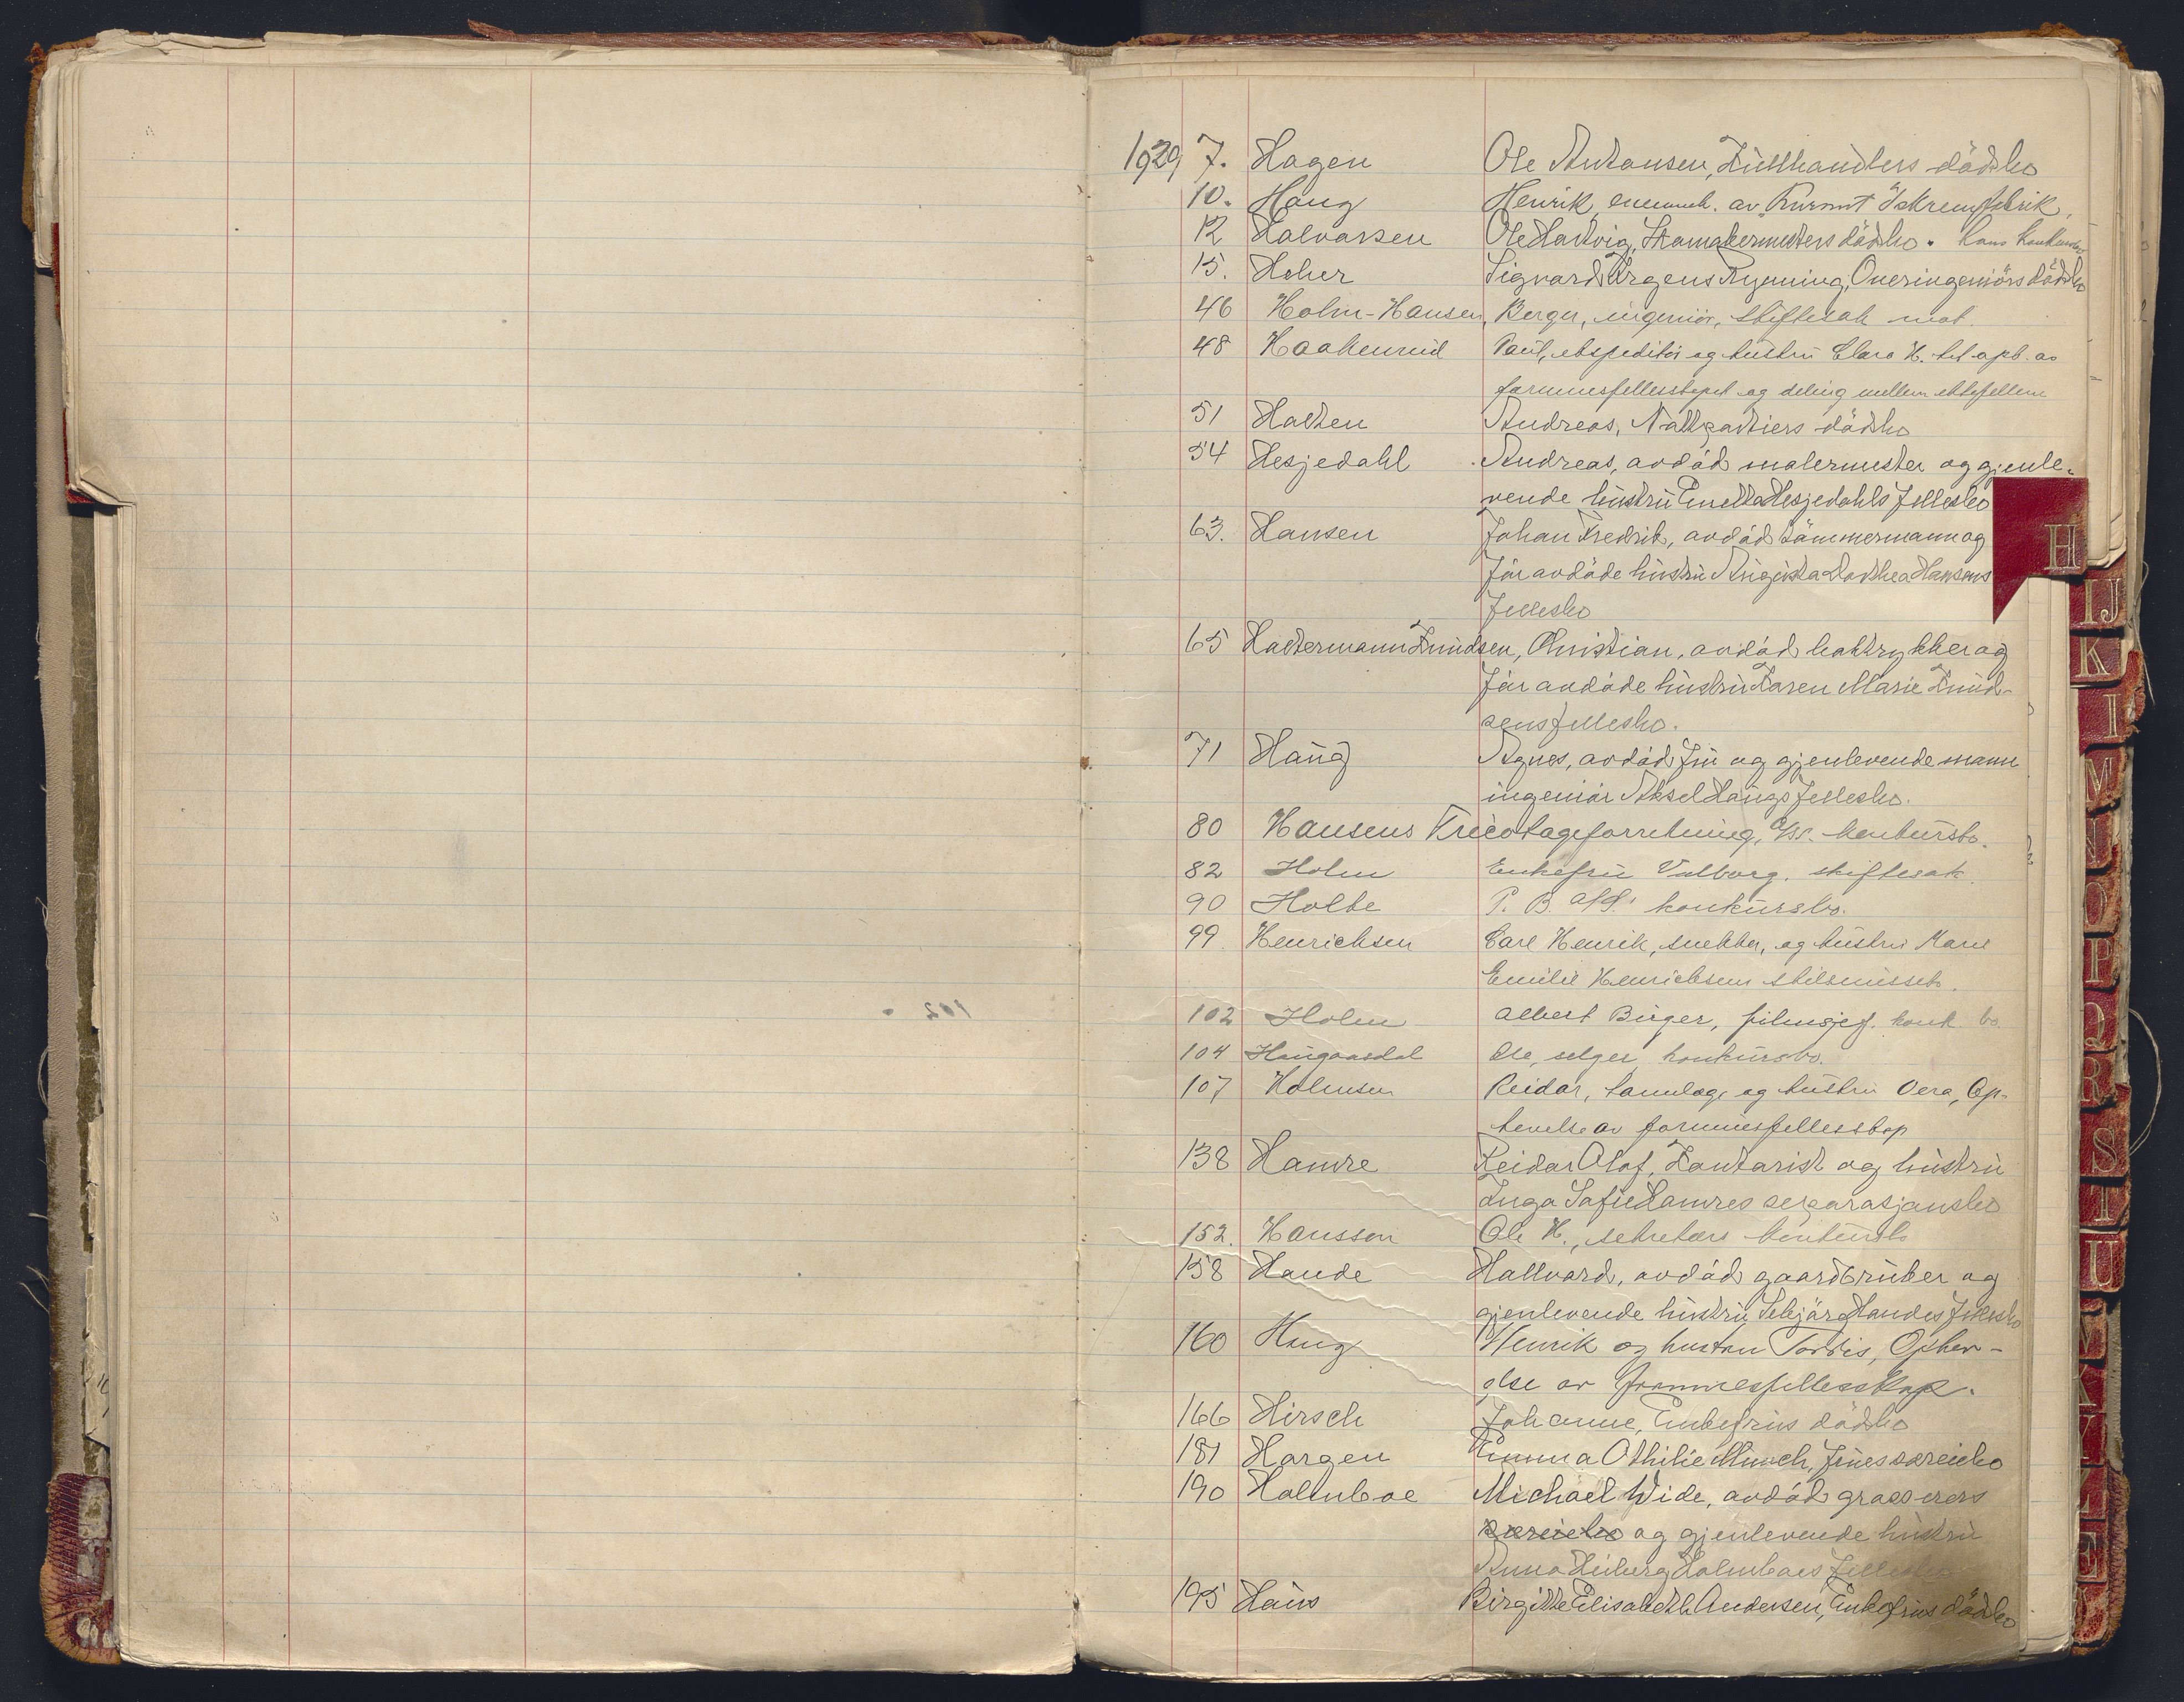 1929 7. Hagen Ole Antonsen, Kullhandlers dødsbo
10. Haug Henrik, enemeh. av "Kurant" Iskremfabrik,
12 Halvorsen Ole Hartvig, Skomakermesters dødsbo. hans konkursbo
15. Heber Sigvard Irgens Rynning, Overingeniørs dødsbo
46 Holm-Hansen, Berger, ingeniør, skiftesak mot.
48 Haakenrud Paul, ekspeditør og hustru Clara H. bel. oph. av
formuesfellesskapet og deling mellem ektefellene
51 Holten Andreas, Nattportiers dødsbo
54 Hesjedahl Andreas, avdød malermester og gjenle-
vende hustru Hesjedahls fellesbo
63. Hansen Johan Fredrik, avdød tømmermann og
før avdøde hustru Augusta Dorthea Hansens
fellesbo
65 Haltermann Knudsen, Christian, avdød boktrykker og
før avdøde hustru Karen Marie Knud-
sens fellesbo.
71 Haug Agnes, avdød fru og gjenlevende mann
ingeniør Aksel Haugs fellesbo.
80 Hansens Tricotageforretning, A/S. konkursbo.
82 Holm Enkefru Valborg. skiftesak
90 Holte P. B. A/S' konkursbo.
99. Henrichsen Carl Henrik, snekker, og hustru Marie
Emilie Henrichsens skilsmissebo.
102 Holm Albert Birger, filmsjef. konk. bo.
104 Haugaasdal Ole, selger, konkursbo.
107 Holmsen Reidar, tannlæge og hustru Vera, Op-
hevelse av formuesfellesskap
138 Hamre Reidar Olaf, Kontorist og hustru
Inga Sofie Hamres separasjonsbo
152. Hansson Ole H., sekretærs konkursbo
158 Hande Hallvard, avdød gaardbruker og
gjenlevende hustru Handes fellesbo
160 Haug Henrik og hustru Tordis, Ophev-
else av formuesfellesskap.
166 Hirsch Johanne, Enkefrus dødsbo
181 Horgen Emma Othilie Munch, frues særeiebo
190 Holmboe Michael Wide, avdød grosserers
særeiebo og gjenlevende hustru
Anna Heiberg Holmboes fellesbo
195 Haus Birgitte Elisabeth Andersen, Enkefrus dødsbo
102
H
IJ
K
M
N
O
P
Q
R
S
T
U